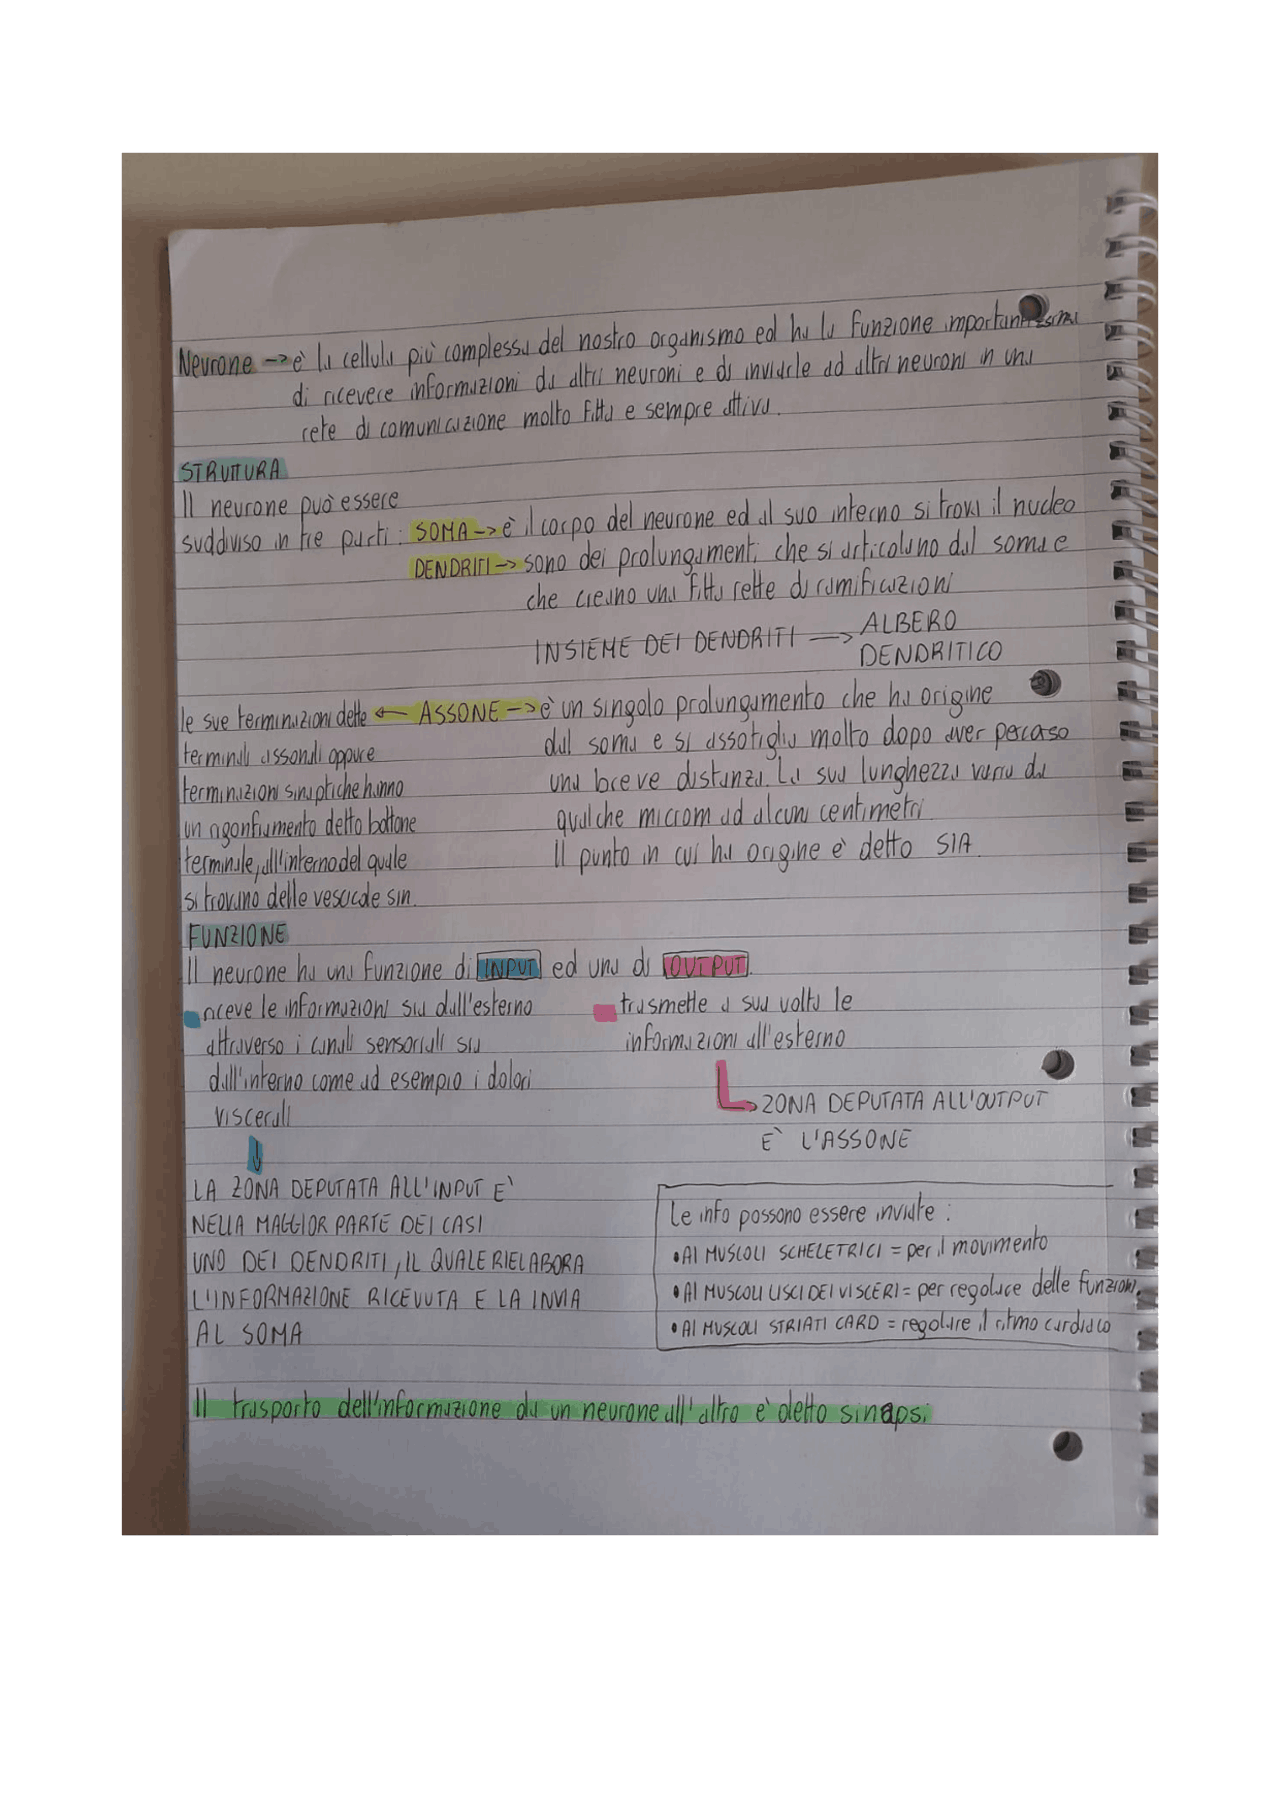 Neurone -> è la cellula più complessa del nostro organismo ed ha la funzione importantissima
di ricevere informazioni da altri neuroni e di inviarle ad altri neuroni in una
rete di comunicazione molto fitta e sempre attiva.
STRUTTURA
Il neurone può essere
suddiviso in tre parti: SOMA -> è il corpo del neurone ed al suo interno si trova il nucleo
DENDRITI -> sono dei prolungamenti che si articolano dal soma e
che creano una fitta rette di ramificazioni
INSIEME DEI DENDRITI -> ALBERO
DENDRITICO
ASSONE -> è un singolo prolungamento che ha origine
dal soma e si assotiglia molto dopo aver percorso
una breve distanza. La sua lunghezza varia da
qualche microm ad alcuni centimetri
Il punto in cui ha origine è detto SIA.
<- le sue terminazioni dette
terminali assonali oppure
terminazioni sinaptiche hanno
un rigonfiamento detto bottone
terminale, all'interno del quale
si trovano delle vescicole sin.
FUNZIONE
Il neurone ha una funzione di INPUT ed una di OUTPUT.
riceve le informazioni sia dall'esterno
attraverso i canali sensoriali sia
dall'interno come ad esempio i dolori
viscerali
↓
LA ZONA DEPUTATA ALL'INPUT E'
NELLA MAGGIOR PARTE DEI CASI
UNO DEI DENDRITI, IL QUALE RIELABORA
L'INFORMAZIONE RICEVUTA E LA INVIA
AL SOMA
trasmette a sua volta le
informazioni all'esterno
ZONA DEPUTATA ALL'OUTPUT
E' L'ASSONE
Le info possono essere inviate:
• AI MUSCOLI SCHELETRICI = per il movimento
• AI MUSCOLI LISCI DEI VISCERI = per regolare delle funzioni.
• AI MUSCOLI STRIATI CARD = regolare il ritmo cardiaco
Il trasporto dell'informazione da un neurone all'altro e' detto sinapsi